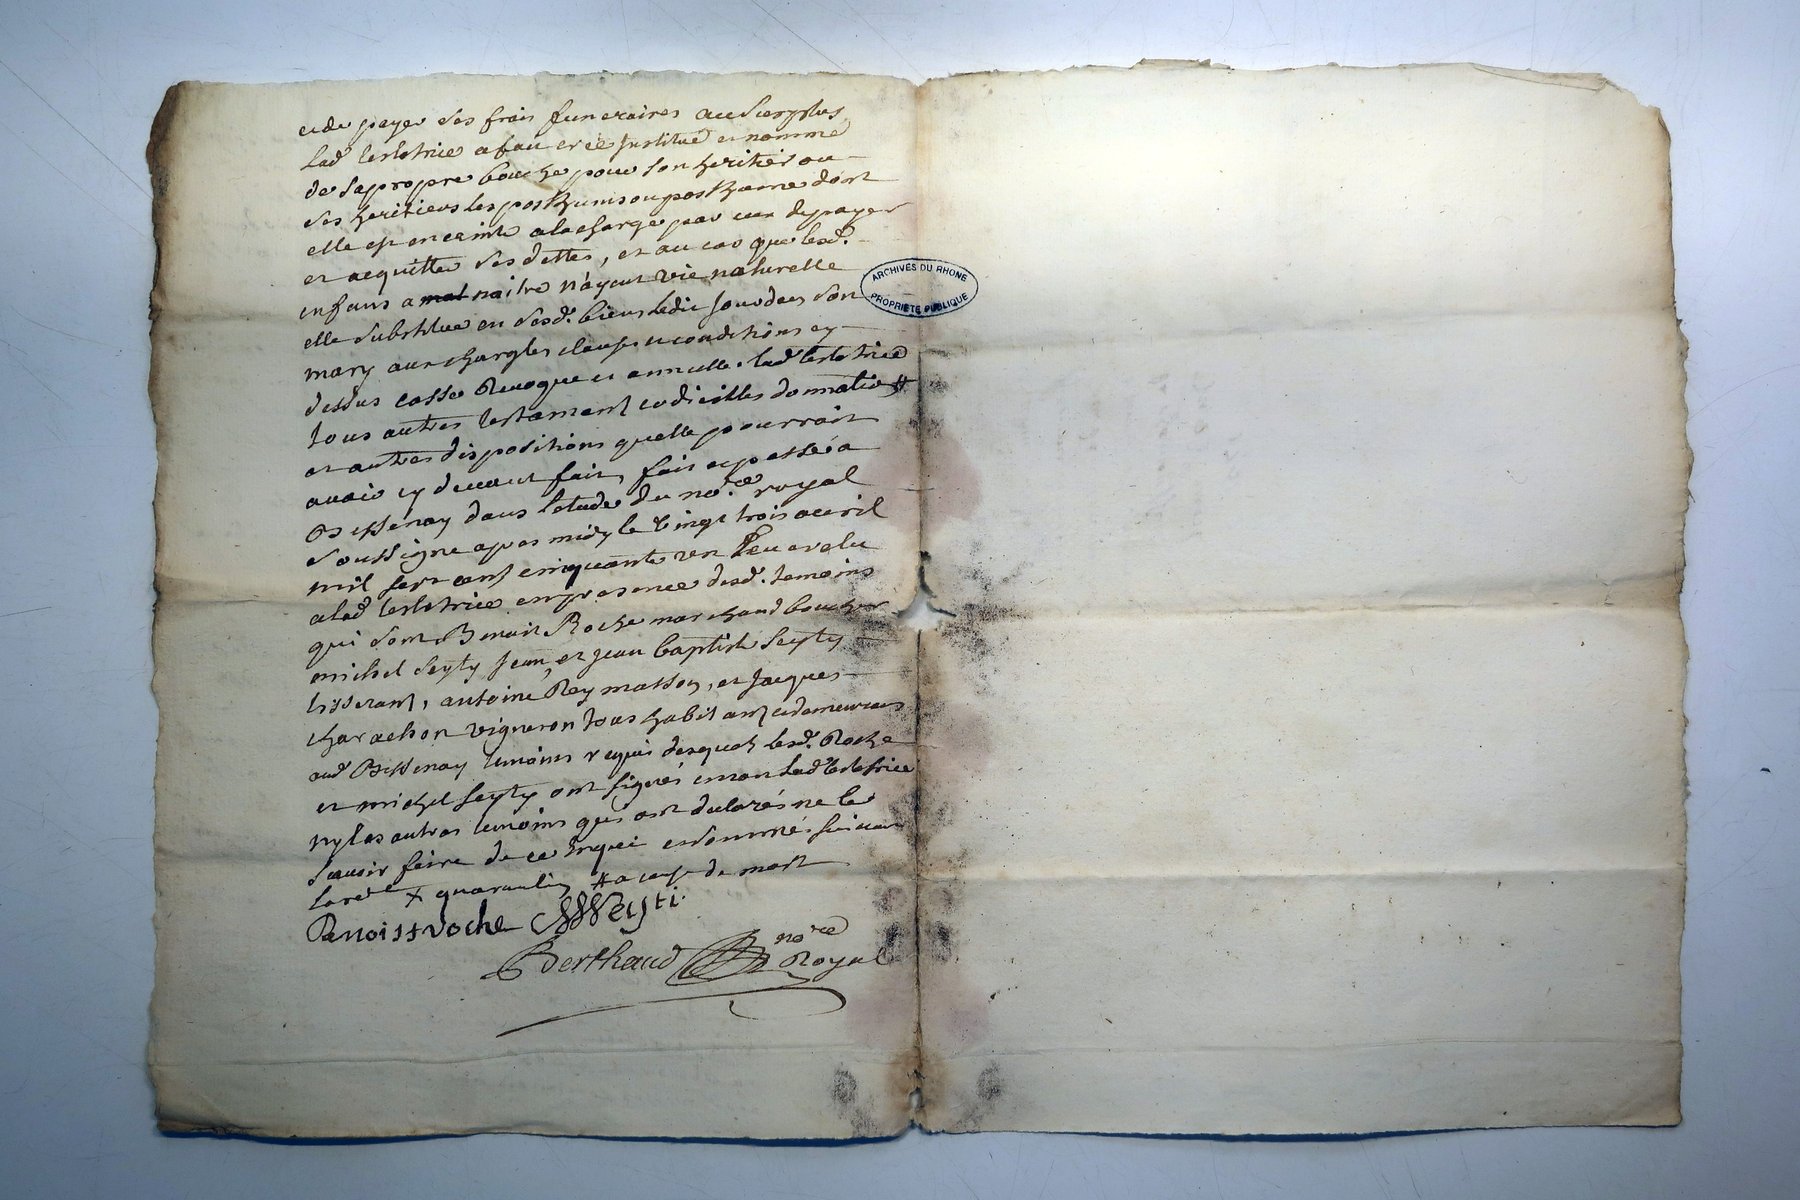 et de payer ses frais funeraires au surplus
lad. testatrice a fait créé Institué et nommé
de sa propre bouche pour son heritier ou
ses heritiers les posthums ou posthume dont
elle est enceinte a la charge par eux de payer
et acquitter ses dettes, et au cas que lesd.
enfans a mal naitre n'ayent vie naturelle
elle substitue en sesd. biens ledit Jourdan son
mary aux charges clauses et conditions cy
dessus casse Revoque et annulle lad. testatrice
tous autres testament codicilles donnation #
et autres dispositions quelle pourroit
avoir cy devant fait, fait et passé a
Bessenay dans letude du nore. royal
soussigné apres midy le vingt trois avril
mil sept cent cinquante un Leu et relu
a lad. testatrice en presence desd. temoins
qui sont Benoit Roche marchand boucher
michel seyty Jean, et jean baptiste seyty
tisserant, antoine Rey masson, et Jacques
charachon vigneron tous habitant et demeurans
aud. Bessenay temoins requis desquels lesd. Roche
et michel seyty ont signés et non lad. testatrice
ny les autres temoins qui ont declarés ne le
sçavoir faire de ce enquis et sommés suivant
# a cause de mort
Benoist roche Seyti.
Berthaud nore
Royal
ARCHIVES DU RHONE
PROPRIETE PUBLIQUE